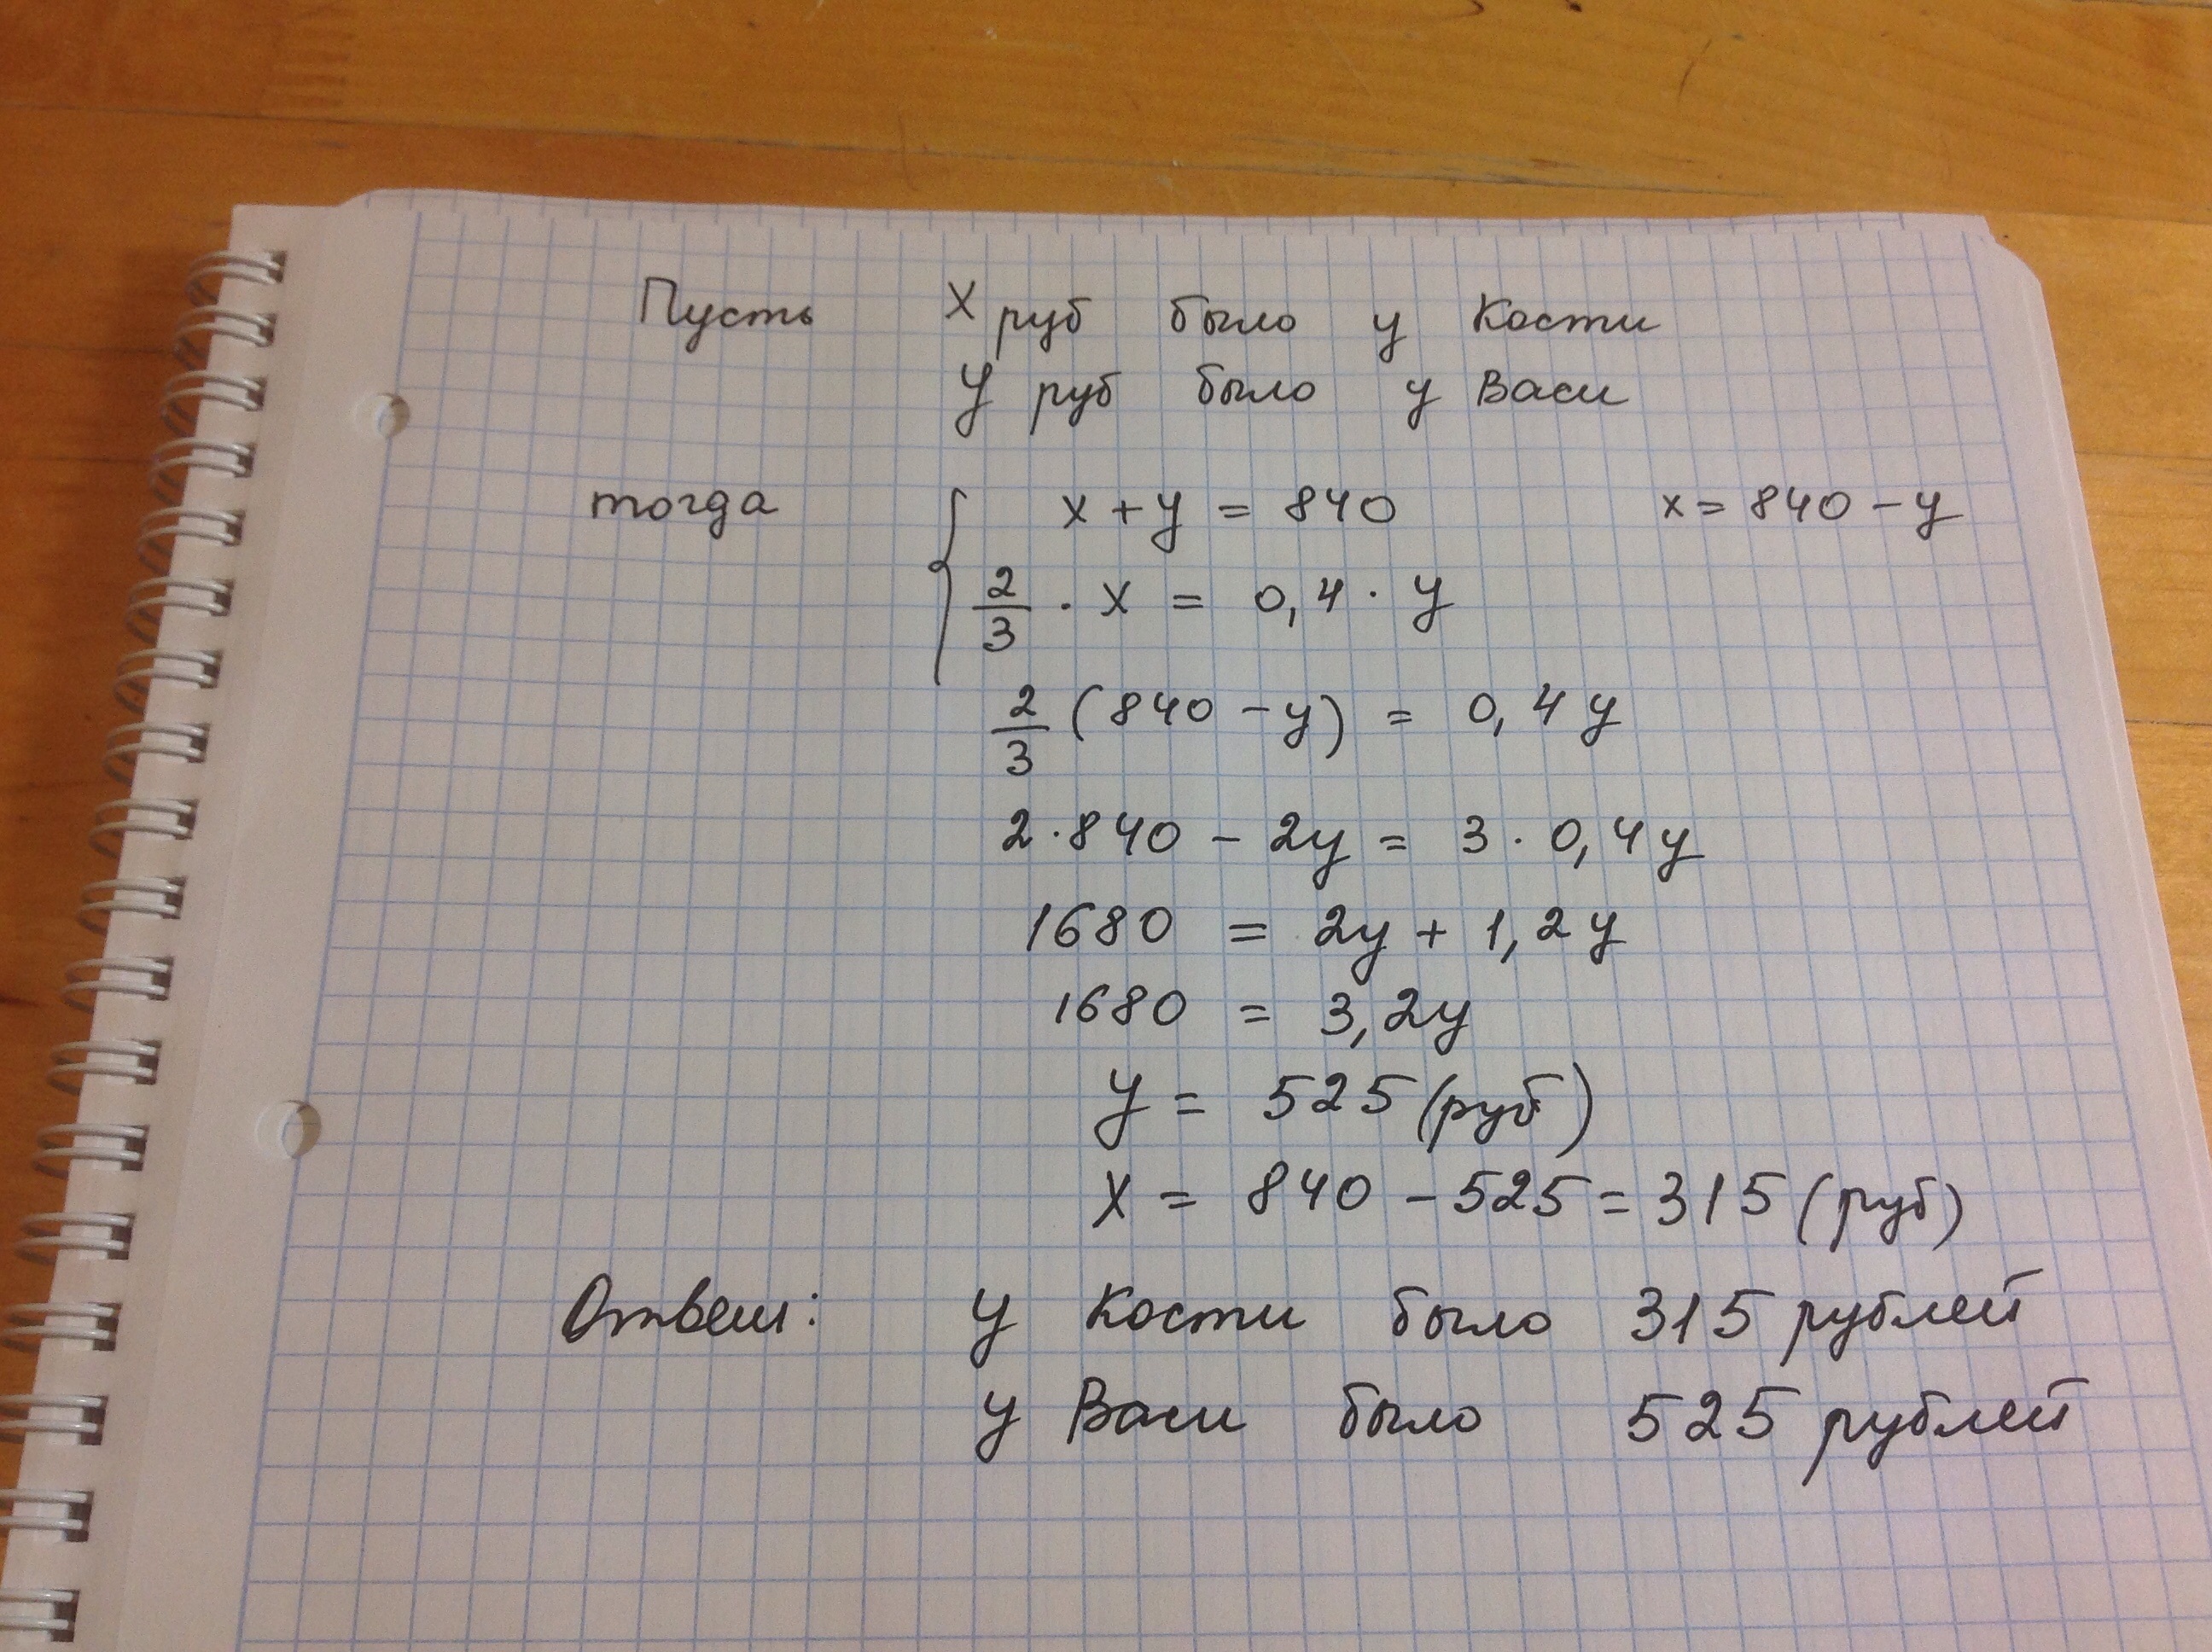 Пусть x руб было у Кости
y руб было у Васи
тогда { x + y = 840 x = 840 - y
2/3 · x = 0,4 · y
2/3 (840 - y) = 0,4 y
2·840 - 2y = 3 · 0,4 y
1680 = 2y + 1,2 y
1680 = 3,2 y
y = 525 (руб)
x = 840 - 525 = 315 (руб)
Ответ: у Кости было 315 рублей
у Васи было 525 рублей